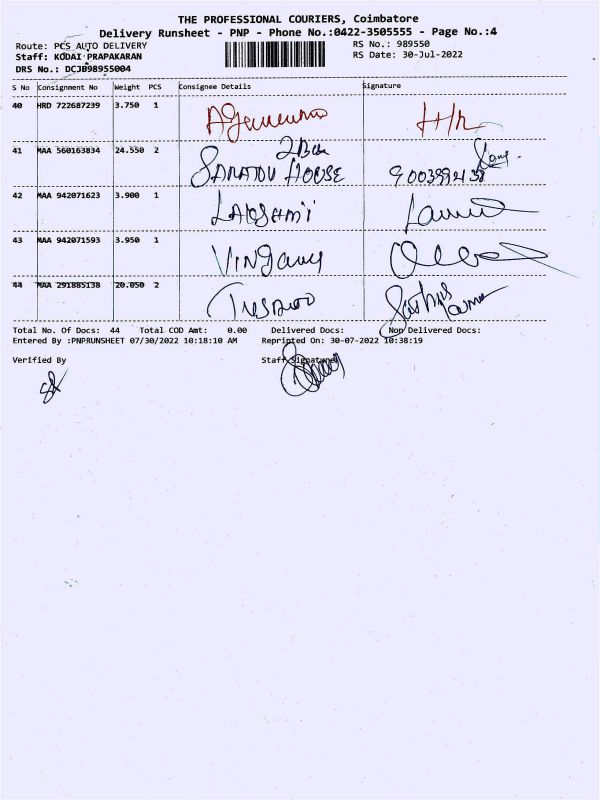 THE PROFESSIONAL COURIERS, Coimbatore
Delivery Runsheet - PNP - Phone No.:0422-3505555 - Page No.:4
Route: PCS_AUTO DELIVERY RS No.: 989550
Staff: KODAI PRAPAKARAN RS Date: 30-Jul-2022
DRS No.: DCJB98955004
S No Consignment No Weight PCS Consignee Details Signature
40 HRD 722687239 3.750 1
41 MAA 560163834 24.550 2 HOUSE
42 MAA 942071623 3.900 1 LAKSHMI
43 MAA 942071593 3.950 1
44 MAA 291885138 20.050 2
Total No. Of Docs: 44 Total COD Amt: 0.00 Delivered Docs: Non Delivered Docs:
Entered By :PNPRUNSHEET 07/30/2022 10:18:10 AM Reprinted On: 30-07-2022 10:38:19
Verified By Staff Signature